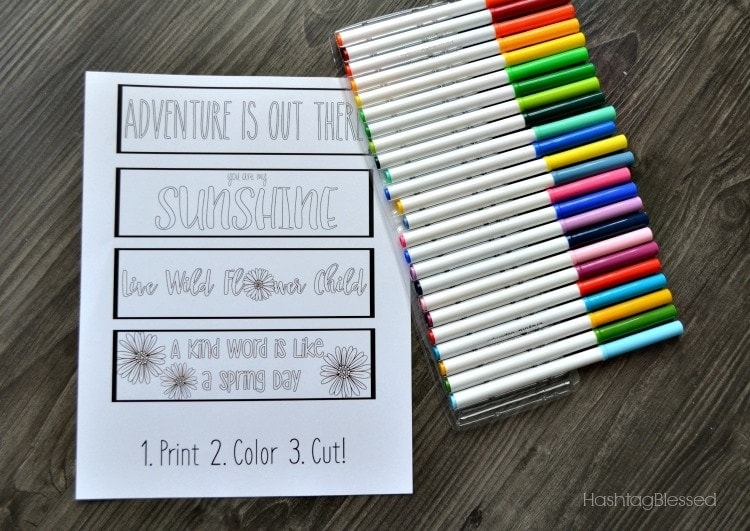 ADVENTURE IS OUT THERE
you are my
SUNSHINE
Live Wild Flower Child
A KIND WORD IS LIKE
a SPRING DAY
1. Print 2. Color 3. Cut!
HashtagBlessed